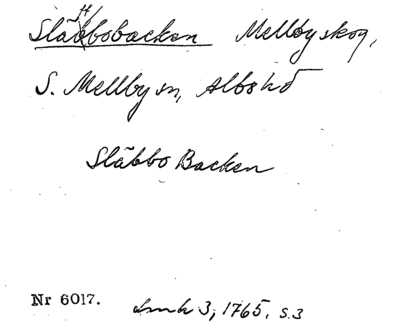 Släbbobacken Mellbyskog,
S. Mellby sn, Albo hd
Släbbo Backen
Nr 6017. Lmh 3, 1765, s. 3